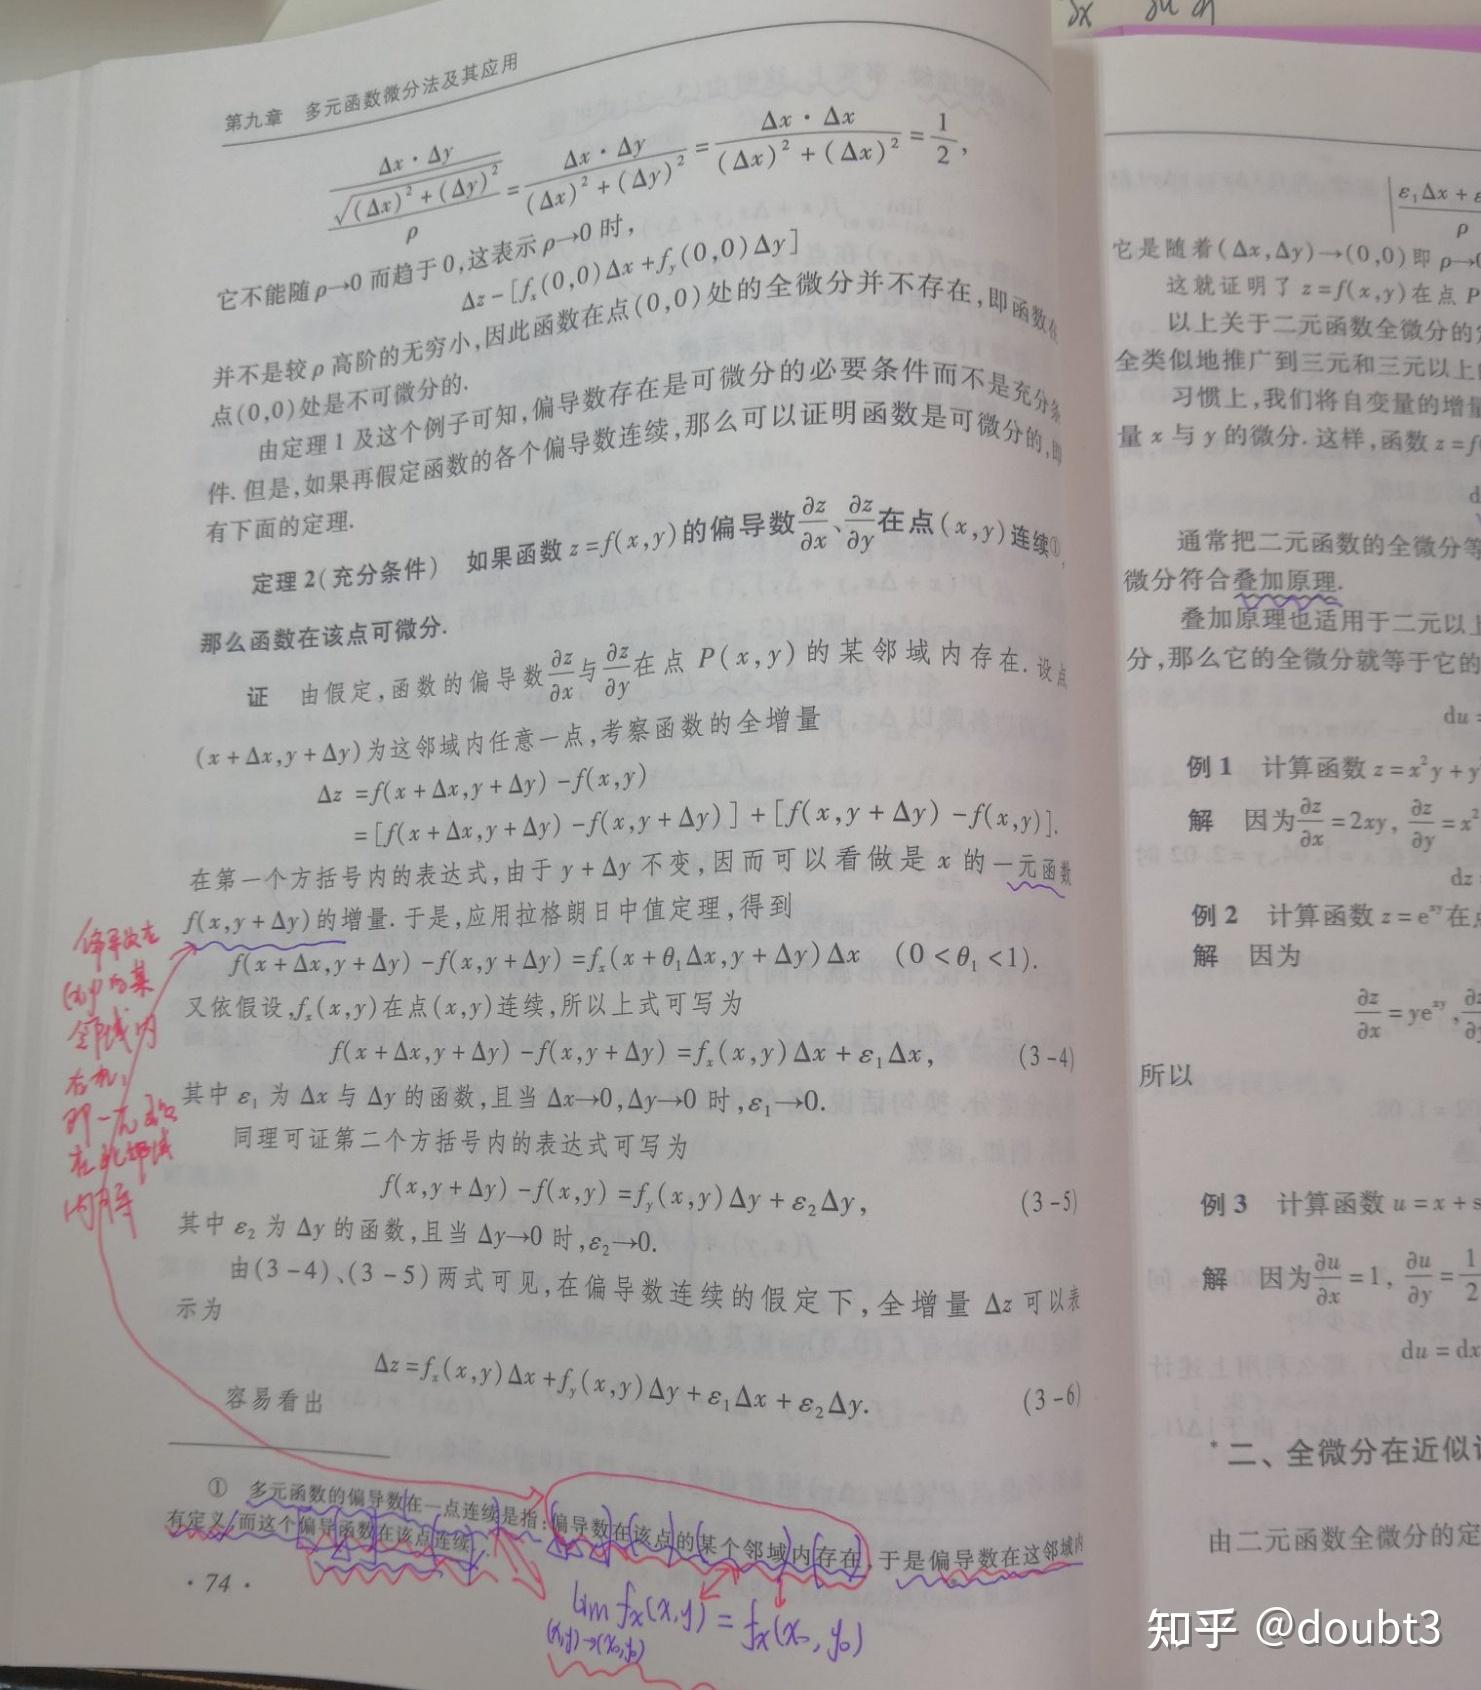 第九章 多元函数微分法及其应用
Δx·Δy/√((Δx)²+(Δy)²)/ρ = Δx·Δy/((Δx)²+(Δy)²) = Δx·Δx/((Δx)²+(Δx)²) = 1/2,
它不能随ρ→0而趋于0,这表示ρ→0时,
Δz-[fₓ(0,0)Δx+f_y(0,0)Δy]
并不是较ρ高阶的无穷小,因此函数在点(0,0)处的全微分并不存在,即函数在
点(0,0)处是不可微分的.
由定理1及这个例子可知,偏导数存在是可微分的必要条件而不是充分条
件.但是,如果再假定函数的各个偏导数连续,那么可以证明函数是可微分的,即
有下面的定理.
定理2(充分条件) 如果函数z=f(x,y)的偏导数∂z/∂x、∂z/∂y在点(x,y)连续①,
那么函数在该点可微分.
证 由假定,函数的偏导数∂z/∂x与∂z/∂y在点P(x,y)的某邻域内存在.设点
(x+Δx,y+Δy)为这邻域内任意一点,考察函数的全增量
Δz=f(x+Δx,y+Δy)-f(x,y)
=[f(x+Δx,y+Δy)-f(x,y+Δy)]+[f(x,y+Δy)-f(x,y)].
在第一个方括号内的表达式,由于y+Δy不变,因而可以看做是x的一元函数
f(x,y+Δy)的增量.于是,应用拉格朗日中值定理,得到
f(x+Δx,y+Δy)-f(x,y+Δy)=fₓ(x+θ₁Δx,y+Δy)Δx (0<θ₁<1).
又依假设,fₓ(x,y)在点(x,y)连续,所以上式可写为
f(x+Δx,y+Δy)-f(x,y+Δy)=fₓ(x,y)Δx+ε₁Δx, (3-4)
其中ε₁为Δx与Δy的函数,且当Δx→0,Δy→0时,ε₁→0.
同理可证第二个方括号内的表达式可写为
f(x,y+Δy)-f(x,y)=f_y(x,y)Δy+ε₂Δy, (3-5)
其中ε₂为Δy的函数,且当Δy→0时,ε₂→0.
由(3-4)、(3-5)两式可见,在偏导数连续的假定下,全增量Δz可以表
示为
Δz=fₓ(x,y)Δx+f_y(x,y)Δy+ε₁Δx+ε₂Δy. (3-6)
容易看出
① 多元函数的偏导数在一点连续是指:偏导数在该点的某个邻域内存在,于是偏导数在这邻域内
有定义,而这个偏导函数在该点连续.
·74·
偏导数在
(x,y)的某
邻域内
存在,
即一元函数
在此邻域
内可导
lim fₓ(x,y)=fₓ(x₀,y₀)
(x,y)→(x₀,y₀)
ε₁Δx+ε
ρ
它是随着(Δx,Δy)→(0,0)即ρ→0
这就证明了z=f(x,y)在点P
以上关于二元函数全微分的定
全类似地推广到三元和三元以上
习惯上,我们将自变量的增量
量x与y的微分.这样,函数z=f
d
通常把二元函数的全微分等
微分符合叠加原理.
叠加原理也适用于二元以上
分,那么它的全微分就等于它的
du=
例1 计算函数z=x²y+y
解 因为∂z/∂x=2xy, ∂z/∂y=x²
dz
例2 计算函数z=e^{xy}在点
解 因为
∂z/∂x=ye^{xy},
所以
例3 计算函数u=x+s
解 因为∂u/∂x=1, ∂u/∂y=1/2
du=dx
*二、全微分在近似计
由二元函数全微分的定
知乎 @doubt3